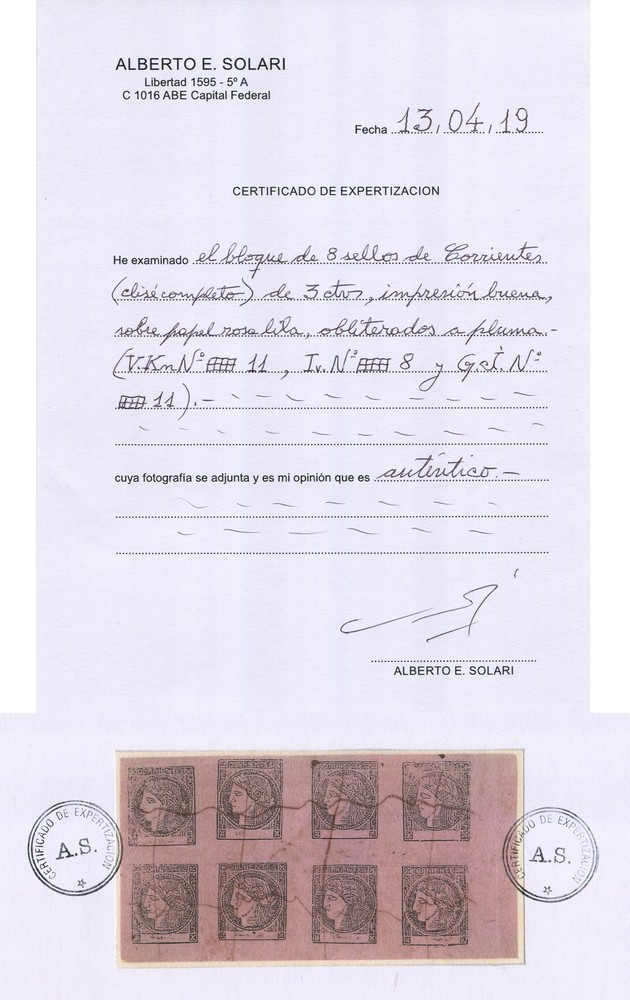 ALBERTO E. SOLARI
Libertad 1595 - 5º A
C 1016 ABE Capital Federal
Fecha 13, 04, 19
CERTIFICADO DE EXPERTIZACION
He examinado el bloque de 8 sellos de Corrientes
(clisé completo) de 3 ctvs, impresión buena,
sobre papel rosa lila, obliterados a pluma.-
(V.Kn Nº 11, Iv. Nº 8 y G.J. Nº
11).-
cuya fotografía se adjunta y es mi opinión que es auténtico.-
ALBERTO E. SOLARI
CERTIFICADO DE EXPERTIZACION
A.S.
CERTIFICADO DE EXPERTIZACION
A.S.